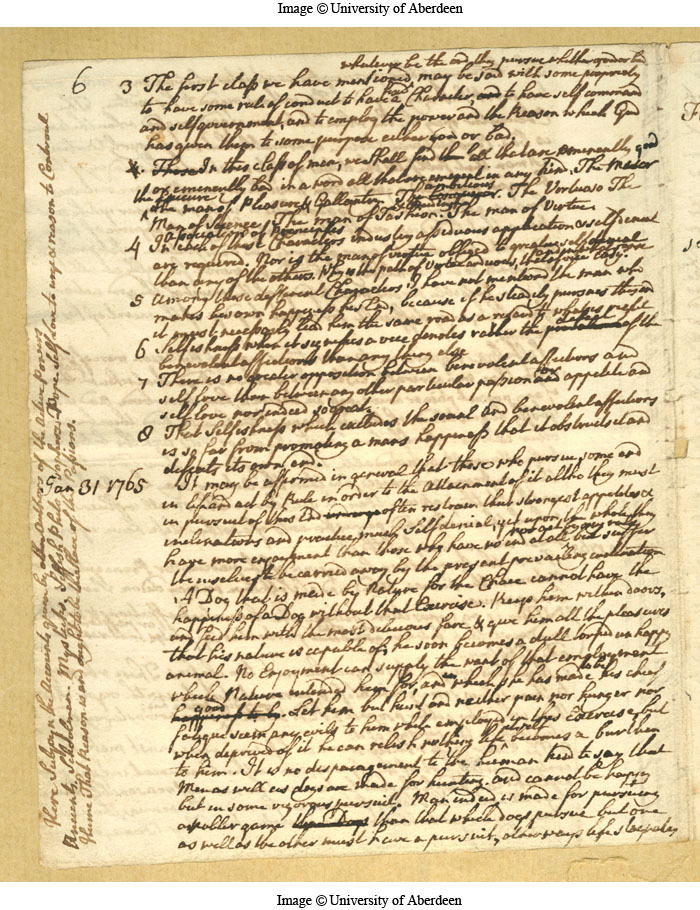 Image © University of Aberdeen
6
whatever be the end they pursue whether good or bad
3 The first class we have mentioned, may be said with some propriety
to have some rule of conduct to have a Character, and to have self command
and self government, and to employ the power and the Reason which God
has given them to some purpose either good or bad.
In this class of men, we shall find all that are eminently good
or eminently bad in a word all that are eminent in any kind. The Miser
the Epicure The man of Pleasure & Gallantry. The ambitious The Vertuoso The
Man of Science, The man of Fashion. The man of Virtue
4 In each of these Characters industry assiduous application & self denial
are required. Nor is the man of virtue obliged to greater self denial
than any of the others.
5 Among these different Characters I have not mentioned the man who
makes his own happiness his End, because if he steadily pursues this end
it must necessarily lead him the same road as a regard to what is right
6 Selfishness when it signifies a vice denotes rather the defect of the
benevolent affections than any thing else
7 There is no greater opposition between benevolent affections and
self love than between any other particular passion or appetite and
self love nor indeed so great.
8 That Selfishness which excludes the social and benevolent affections
is so far from promoting a mans happiness that it obstructs it and
defeats its own end.
Jan 31 1765
It may be affirmed in general that those who pursue some end
in life and act by Rule in order to the Attainment of it altho they must
in pursuit of this End often restrain their strongest appetites &
inclinations and practice much Self denial, yet upon the whole they
have more enjoyment than those who have no end at all but suffer
themselves to be carried away by the present prevailing inclination
A Dog that is made by Nature for the Chace cannot have the
happiness of a Dog without that Exercise. Keep him within doors,
and feed him with the most delicious fare & give him all the pleasures
that his nature is capable of; he soon becomes a dull torpid unhappy
animal. No Enjoyment can supply the want of that employment
which Nature intended him for, and which she has made his chief
good. Let him but hunt and neither pain nor hunger nor
fatigue seem any evils to him while employed in this Exercise, but
when deprived of it he can relish nothing life becomes a burthen
to him. It is no disparagement to the human kind to say that
Men as well as dogs are made for hunting and cannot be happy
but in some vigorous pursuit. Man indeed is made for pursuing
a nobler game than that which dogs pursue but one
as well as the other must have a pursuit, otherways life stagnates
Here Subjoyn the Accounts given by other Authors of the active powers
Ancients, Schoolmen. Mysticks,
Hume That Reason is and ought to be the slave of the Passions.
Image © University of Aberdeen